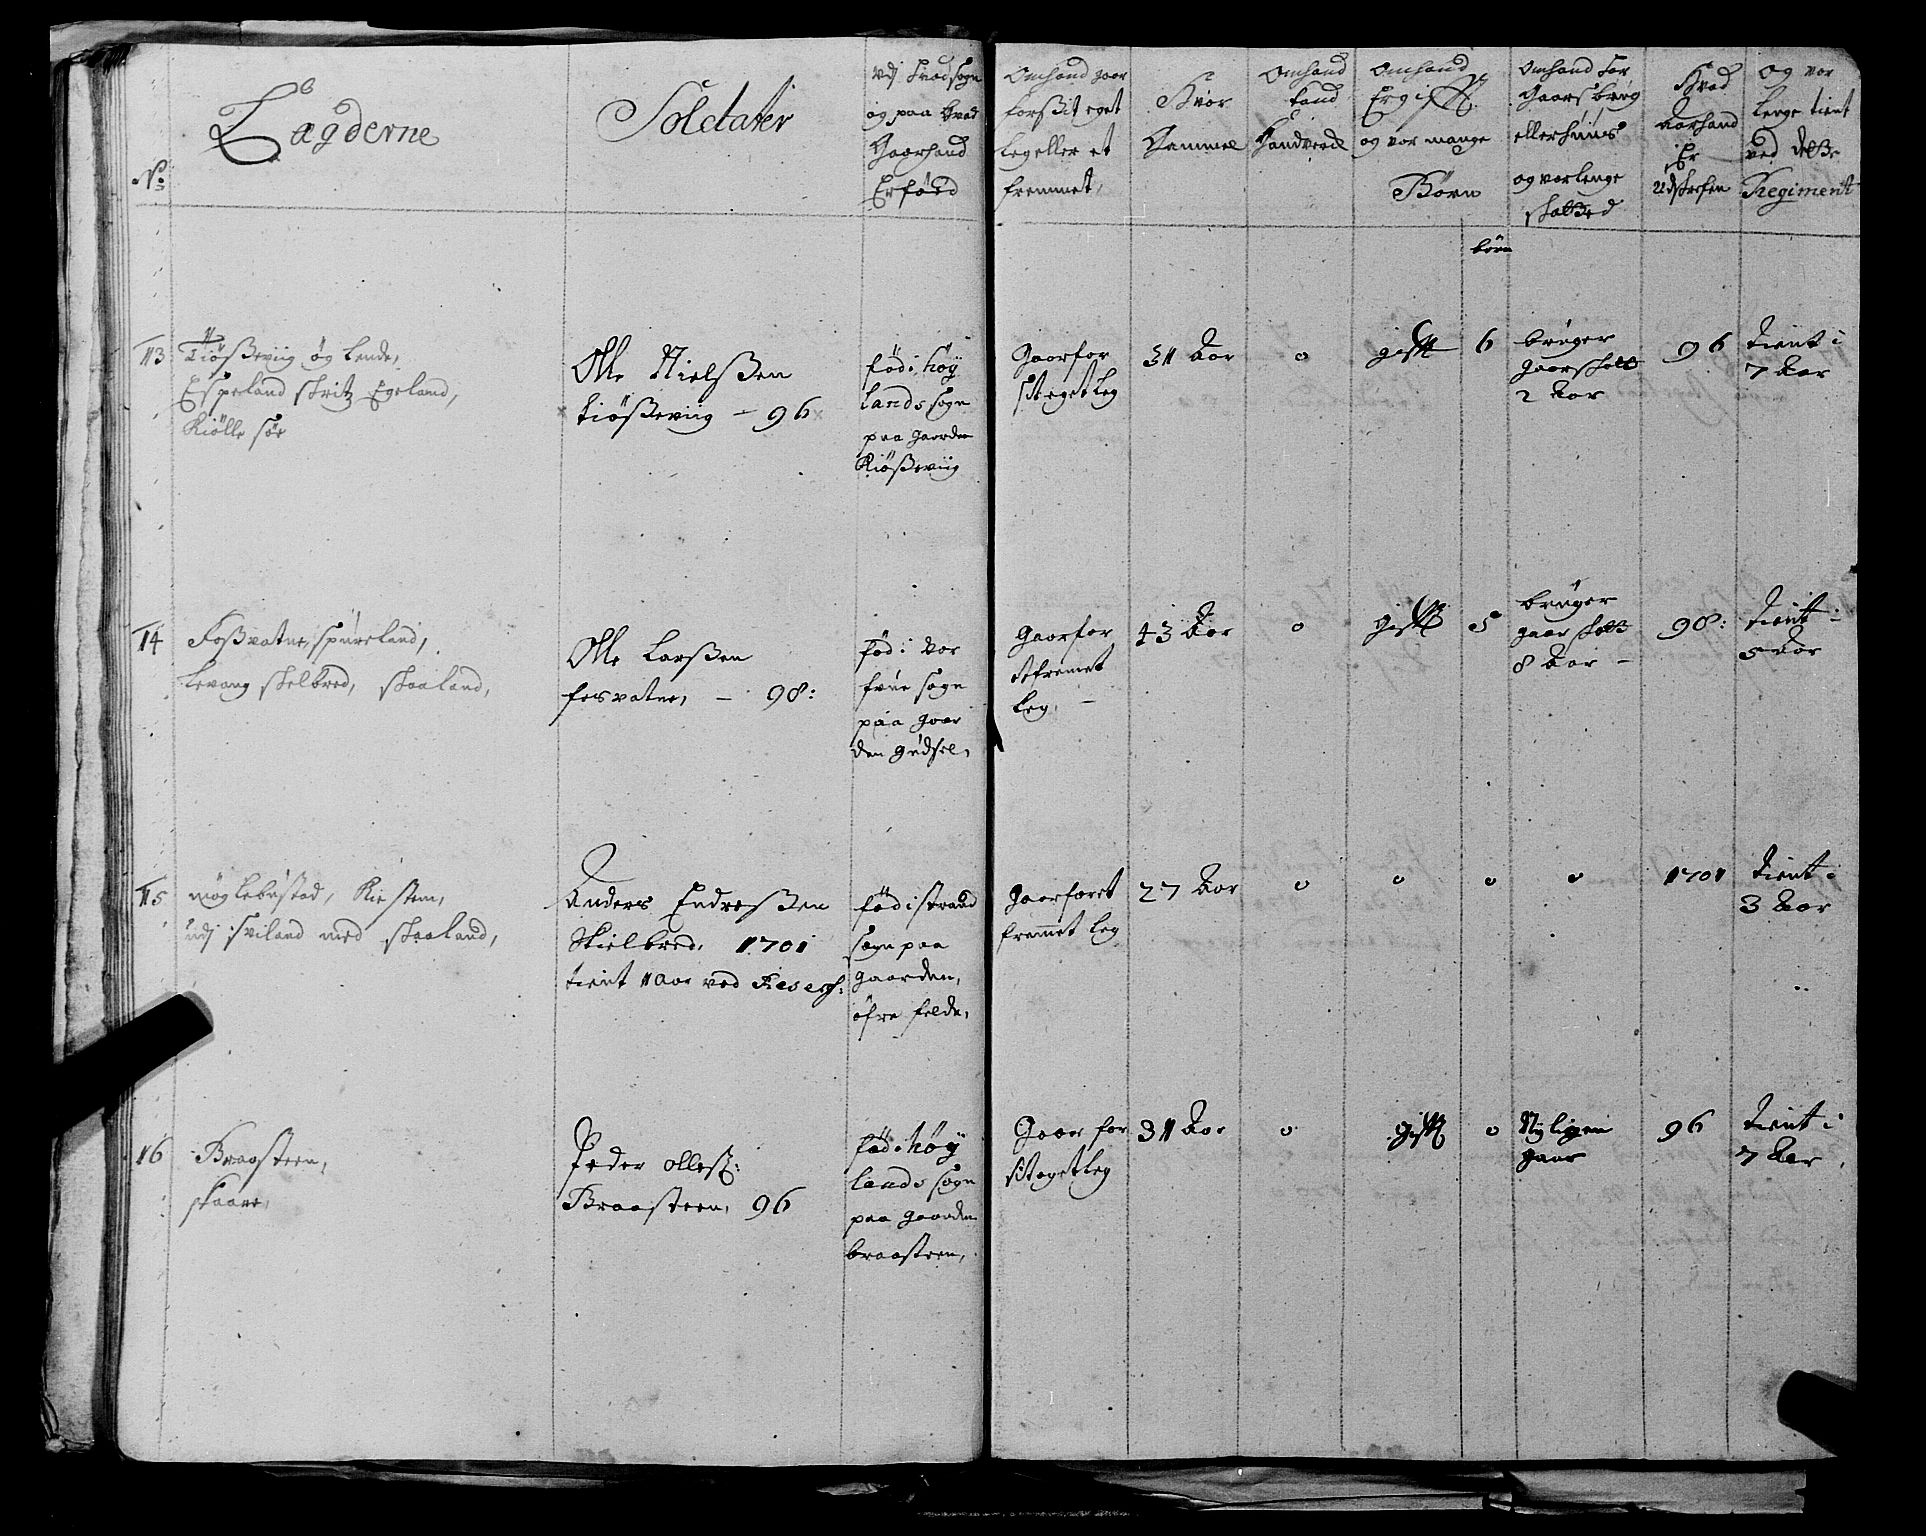 No
Lægderne
Soldater
udj hvad sogn
og paa hvad
Gaar hand
Er föed
Om hand gaar
for sit eget
leg eller et
fremmet,
Hvor
Gammel
Om hand
kand
Handverck
Om hand
Er gift
og vor mange
Börn
Om hand har
Gaarsbrug
eller huus
og vor lenge
Hvad
Aar hand
Er
udskrefven
og vor
lenge tient
ved dette
Regiment
börn
13
Kiößeviig og Lende,
Espeland skritz Egeland,
Kiölle sör
Olle Nielßen
Kiößeviig – 96
föd i höÿ
lands sogn
paa gaarden
Kiößeviig
Gaar for
sit eget leg
31 Aar
0
gift
6
bruger
gaar
2 Aar
96
tient i
7 Aar
14
Foßvatne, spüreland,
Levang skelbred, skaaland,
Olle Larßen
fosvatne, – 98:
föd i vor
frue sogn
paa gaar
den
Gaar for
et fremet
leg, –
43 Aar
0
gift
5
brüger
gaar
8 Aar –
98:
tient i
5 Aar
15
möglebüstad, Kiesten,
udj sviland med skaaland,
Anders Endreßen
Skielbred, 1701
tient 1 Aar ved
föd i strand
sogn paa
gaarden,
öfre felde,
Gaar for et
fremmet leg
27 Aar
0
0
0
0
1701
tient i
3 Aar
16
Braasteen,
skaare,
Peder olleß:
Braasteen, 96
föd i höÿ
lands sogn
paa gaarden
braasteen,
Gaar for
sit eget leg
31 Aar
0
gift
0
Nÿligen
gaar
96
tient i
7 Aar